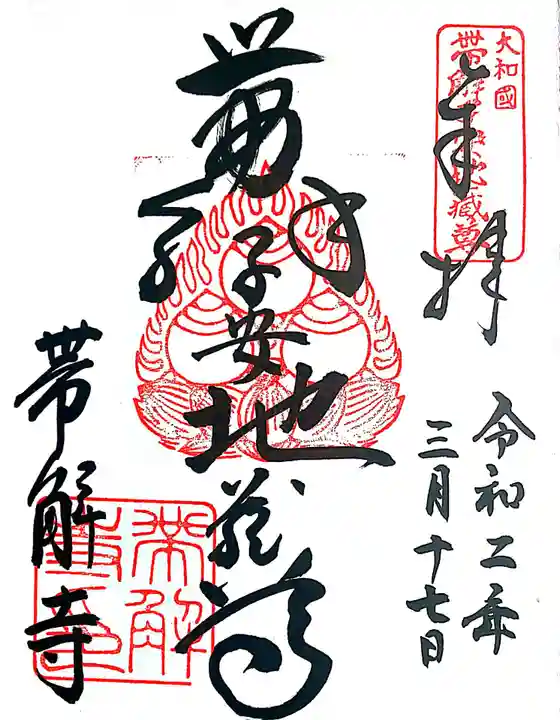 奉拝
大和國
帯解子安地蔵尊
令和二年
三月十七日
帯解子安地蔵尊
帯解寺
帯解寺印